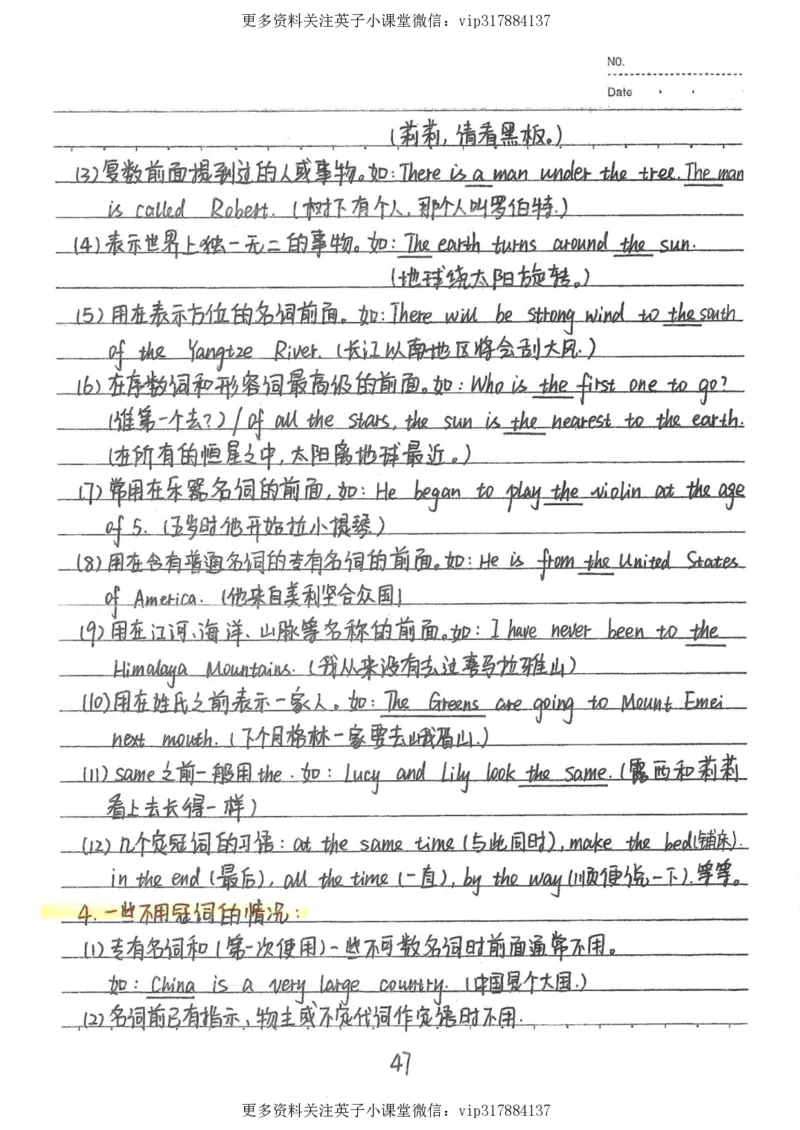 更多资料关注英子小课堂微信：vip317884137
NO.
Date
(莉莉，请看黑板。)
(3)复数前面提到过的人或事物。如：There is a man under the tree. The man
is called Robert. (树下有个人，那个人叫罗伯特.)
(4)表示世界上独一无二的事物。如：The earth turns around the sun.
(地球绕太阳旋转。)
(5)用在表示方位的名词前面。如：There will be strong wind to the south
of the Yangtze River. (长江以南地区将会刮大风.)
(6)在序数词和形容词最高级的前面。如：Who is the first one to go?
(谁第一个去？) / Of all the stars, the sun is the nearest to the earth.
(在所有的恒星之中，太阳离地球最近。)
(7)常用在乐器名词的前面，如：He began to play the violin at the age
of 5. (五岁时他开始拉小提琴)
(8)用在含有普通名词的专有名词的前面。如：He is from the United States
of America. (他来自美利坚合众国)
(9)用在江河、海洋、山脉等名称的前面。如：I have never been to the
Himalaya Mountains. (我从来没有去过喜马拉雅山)
(10)用在姓氏之前表示一家人。如：The Greens are going to Mount Emei
next mouth. (下个月格林一家要去峨眉山.)
(11) same之前一般用the. 如：Lucy and Lily look the same. (露西和莉莉
看上去长得一样)
(12)几个定冠词的习语：at the same time (与此同时), make the bed(铺床).
in the end (最后), all the time (一直), by the way (顺便说一下).等等。
4. 一些不用冠词的情况：
(1)专有名词和(第一次使用)一些不可数名词时前面通常不用。
如：China is a very large country. (中国是个大国.)
(2)名词前已有指示、物主或不定代词作定语时不用.
47
更多资料关注英子小课堂微信：vip317884137